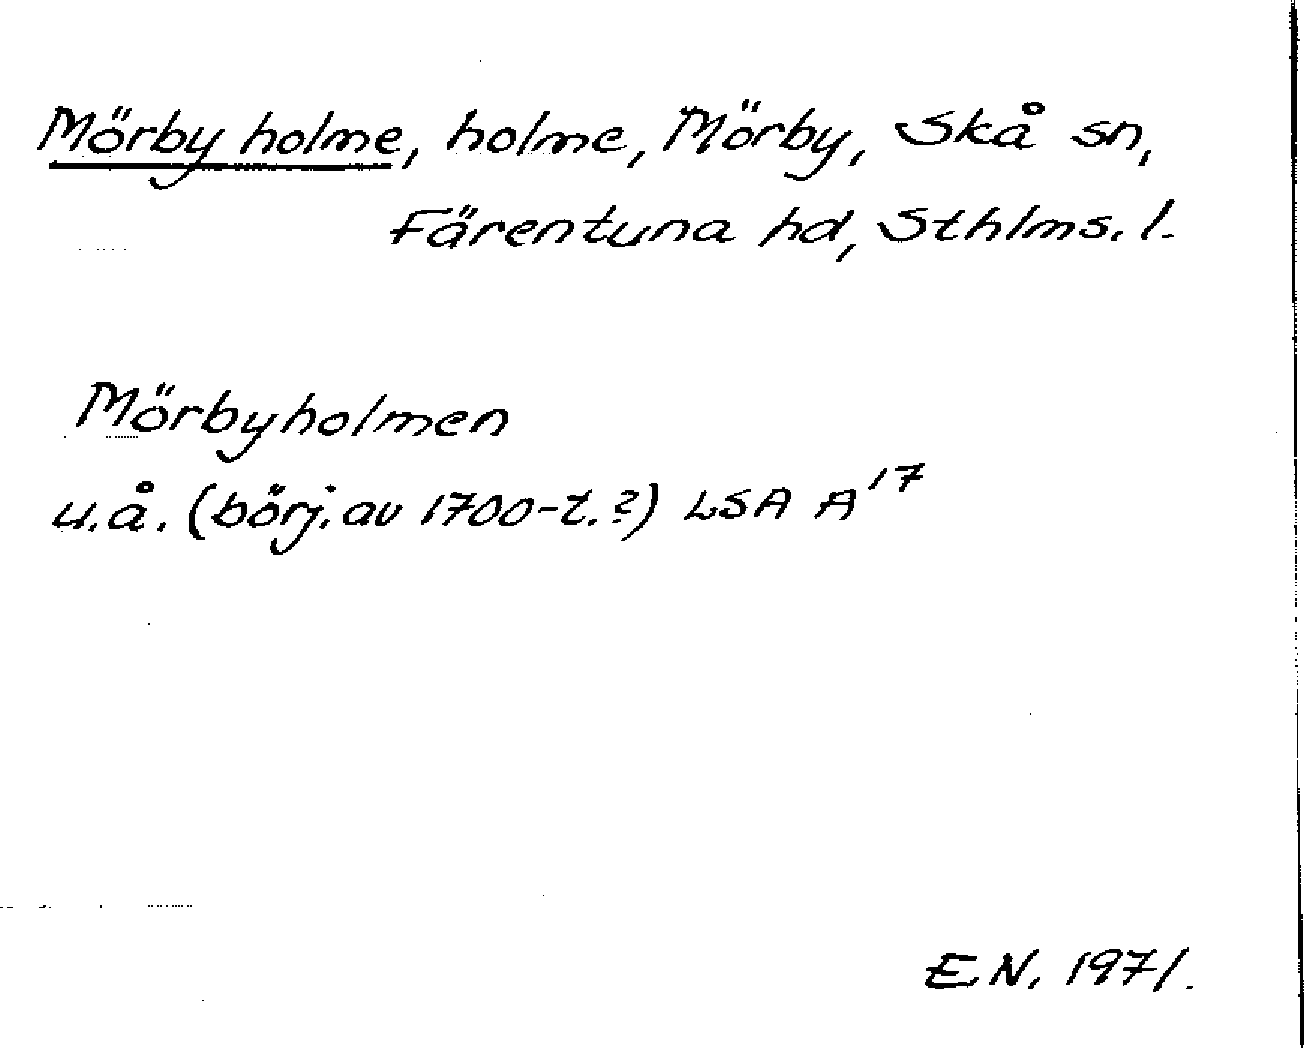 Mörby holme, holme, Mörby, Skå sn,
Färentuna hd, Sthlms. l.
Mörbyholmen
u.å. (börj. av 1700-t. ?) LSA A¹⁷
E.N. 1971.